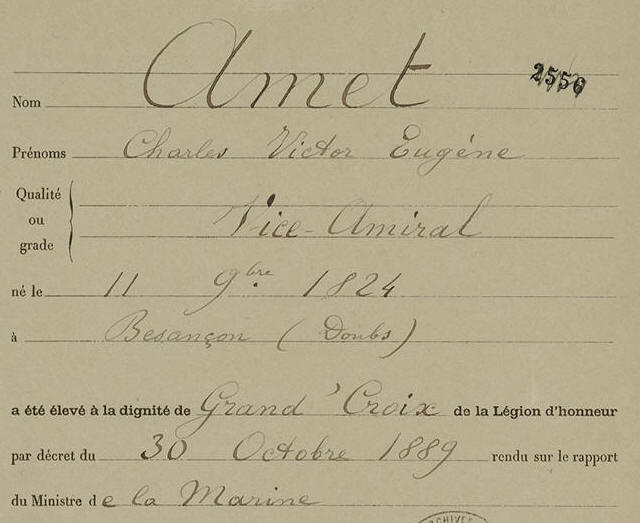 Nom Amet 2556
Prénoms Charles Victor Eugène
Qualité
ou
grade
Vice-Amiral
né le 11 9bre 1824
à Besançon (Doubs)
a été élevé à la dignité de Grand'Croix de la Légion d'honneur
par décret du 30 Octobre 1889 rendu sur le rapport
du Ministre de la Marine
ARCHIVES